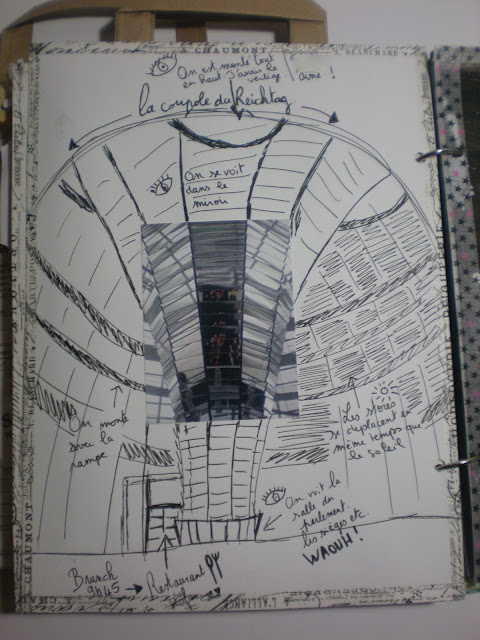 A CHAUMONT
BLANCHARD
On est monté tout
en haut. J'avais le
vertige.
Aïme!
la coupole du Reichtag
On se voit
dans le
miroir
BLANCHARD
On monte
avec la
rampe
Les stores
se déplacent en
même temps que
le soleil
On voit la
salle du
parlement.
les sièges etc.
WAOUH!
Brunch
9h45 → Restaurant
CHAUMONT
L'ALLIANCE